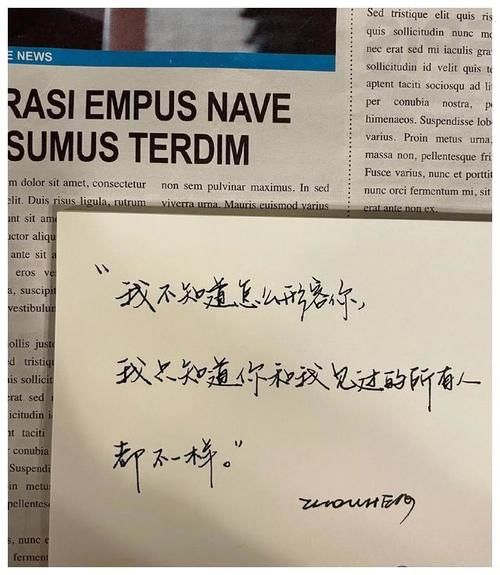 E NEWS
RASI EMPUS NAVE
SUMUS TERDIM
m dolor sit amet, consectetur
elit. Duis risus ligula, rutrum
unt sit ame
uctor aliqu
ante sit a
eros ve
a, suscipit
vestibulum
ollis just
d tristiqu
is sollicit
erat sed
licitudin
nt taciti
conubia
Suspendi
in metu
pellentes
ferment
non sem pulvinar maximus. In sed
viverra urna. Mauris euismod varius
Sed tristique elit quis ris
quis sollicitudin nunc mo
nec erat sed mi iaculis grav
sollicitudin id velit quis te
aptent taciti sociosqu ad lit
per conubia nostra, p
himenaeos. Suspendisse lob
varius. Proin metus urna,
massa non, pellentesque fri
Fusce varius, nunc et porttit
nunc orci fermentum mi, sit
erat ante non ex.
“我不知道怎么形容你，
我只知道你和我见过的所有人
都不一样。”